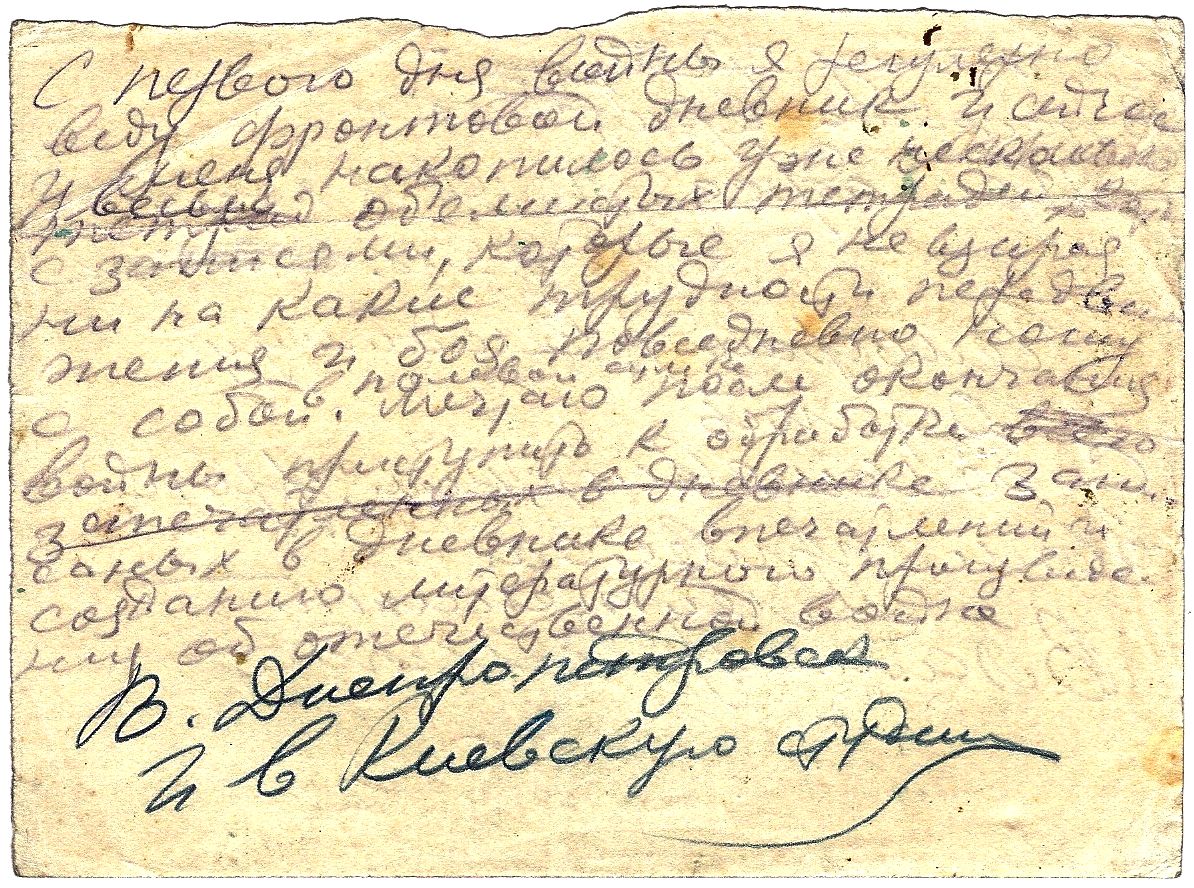 С первого дня войны я регулярно
веду фронтовой дневник. И сейчас
у меня накопилось уже несколько
тетрад общих тетрадей
с записями, которые я невзирая
ни на какие трудности передви
жения и боя повседневно ношу
в полевой сумке
с собой. Мечтаю после окончания
войны приступить к обработке всего
запечатленных в дневнике запи
санных в дневнике впечатлений и
созданию литературного произведе
ния об отечественной войне
В. Днепропетровск
И в Киевскую студию